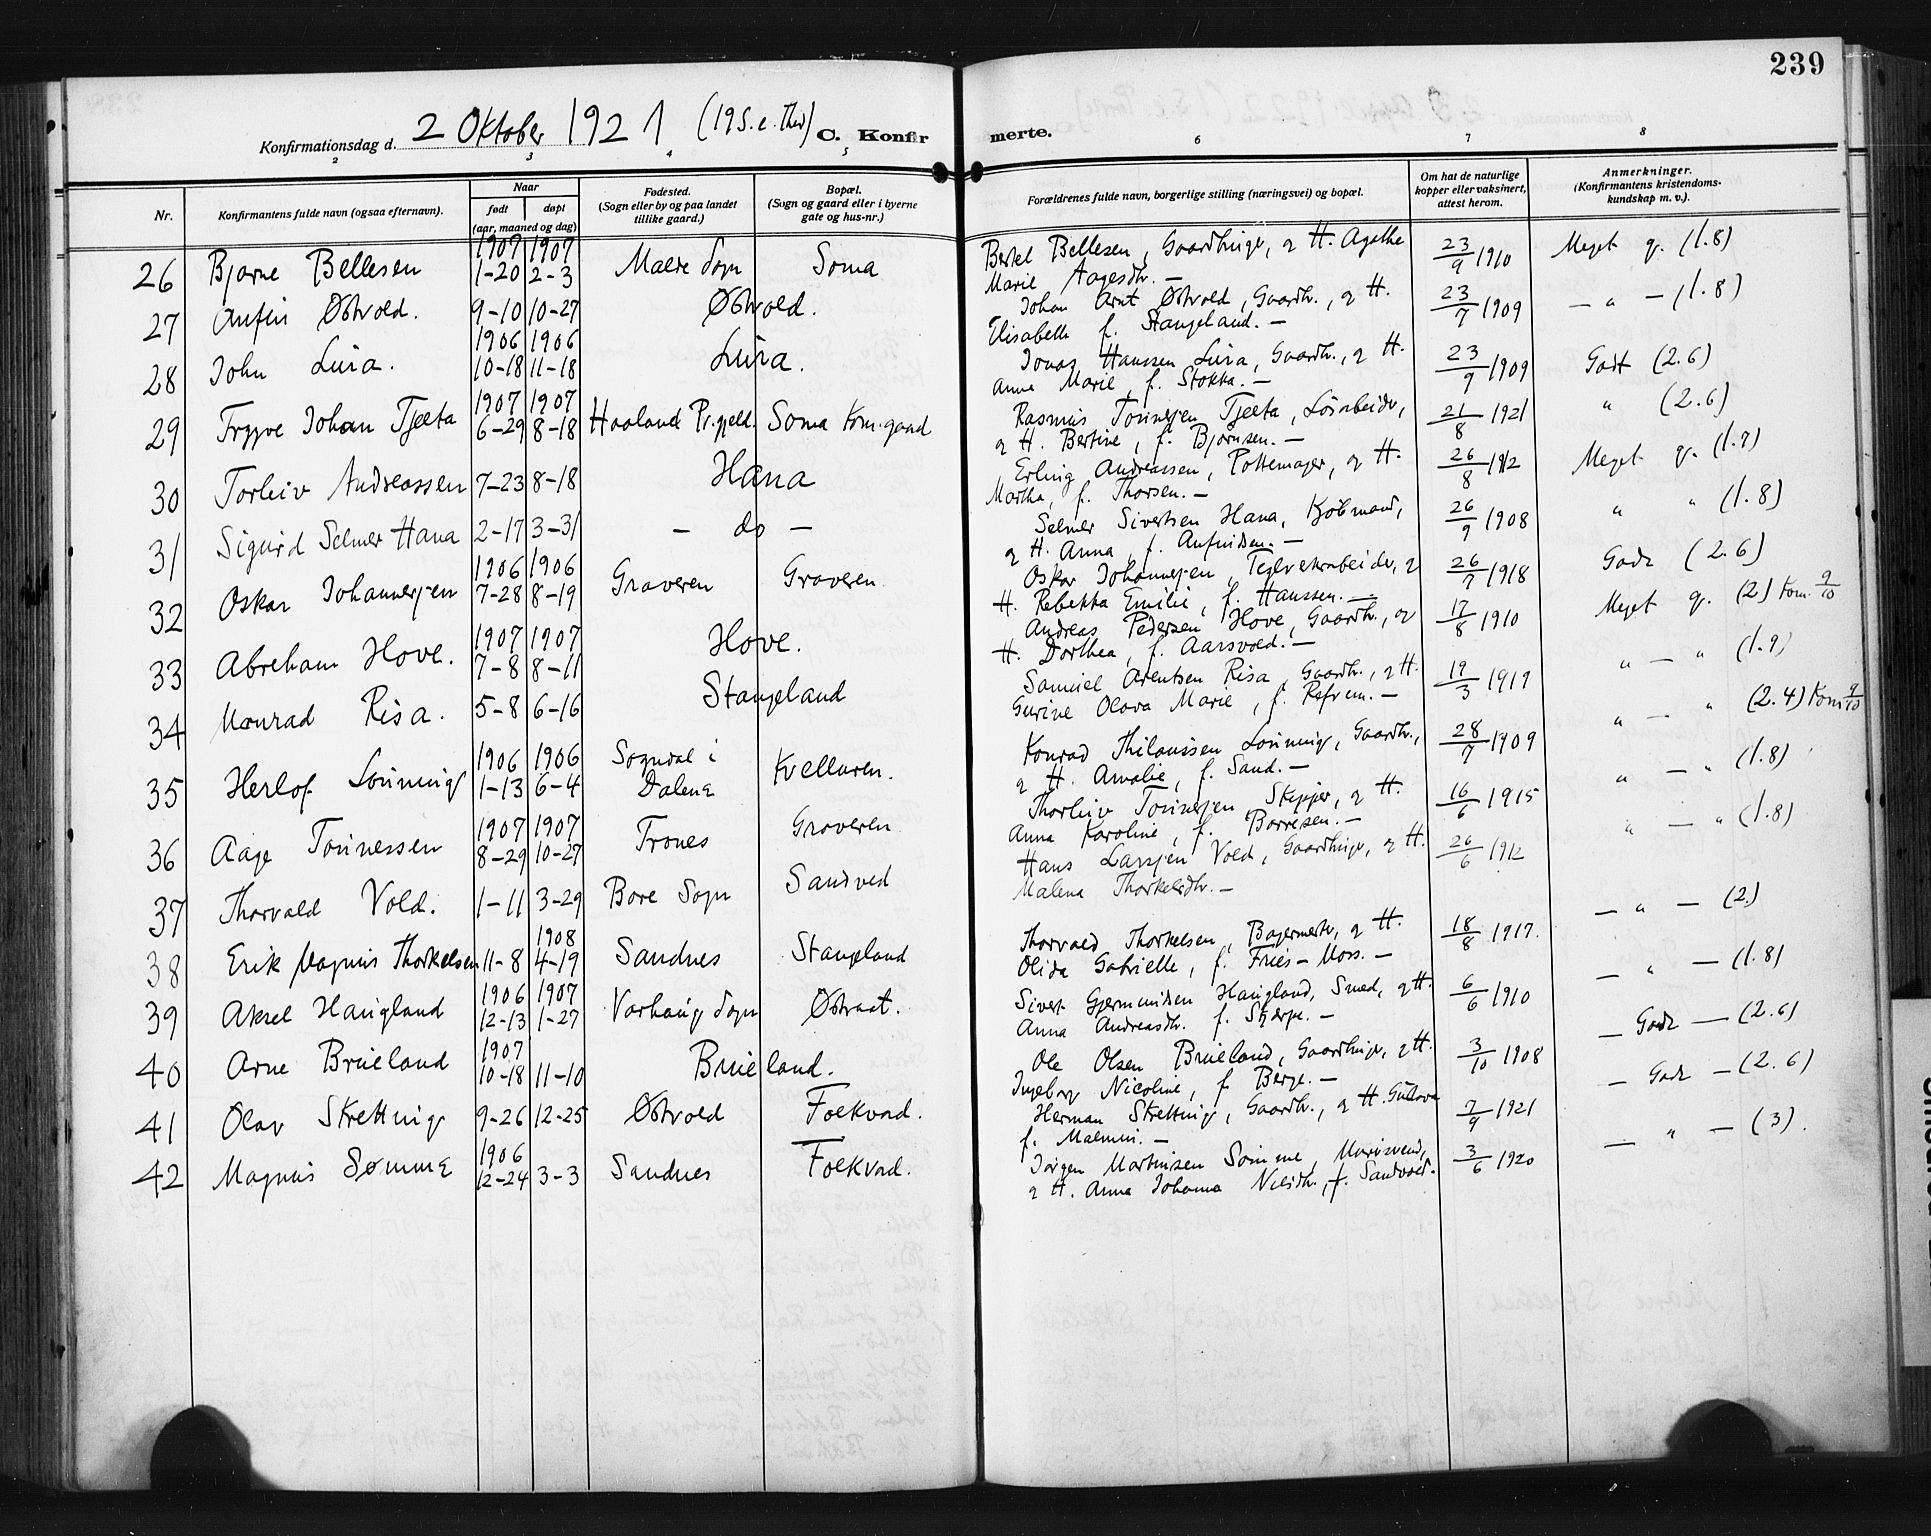 239
Konfirmationsdag d. 2 Oktober 1921 (19 S. e. Thr) C. Konfirmerte.
2 3 4 5 6 7 8
Nr. Konfirmantens fulde navn (ogsaa efternavn). Naar født døpt (aar, maaned og dag) Fødested. (Sogn eller by og paa landet tillike gaard.) Bopæl. (Sogn og gaard eller i byerne gate og hus-nr.) Forældrenes fulde navn, borgerlige stilling (næringsvei) og bopæl. Om hat de naturlige kopper eller vaksinert, attest herom. Anmerkninger. (Konfirmantens kristendoms-kundskap m. v.).
26 Bjarne Bellesen 1907 1-20 1907 2-3 Malde Sogn Soma Bertel Bellesen, Gaardbruger, og H. Agathe Marie Aagesdtr. — 23/9 1910 Meget g. (1.8)
27 Anfin Østvold. 9-10 10-27 Østvold. Johan Arnt Østvold, Gaardbr., og H. Elisabeth f. Stangeland. — 23/7 1909 — " — (1.8)
28 John Lura. 1906 10-18 1906 11-18 Lura. Jonas Hanssen Lura, Gaardbr., og H. Anna Marie, f. Stokka. — 23/9 1909 Godt (2.6)
29 Trygve Johan Tjelta 1907 6-29 1907 8-18 Haaland Pr.gjeld. Soma Kom.gaard Rasmus Tønnesen Tjelta, Løsarbeider, og H. Bertine, f. Bjørnsen. — 21/8 1921 " (2.6)
30 Torleiv Andreassen 7-23 8-18 Hana Erling Andreassen, Pottemager, og H. Martha, f. Thorsen. — 26/8 1912 Meget g. (1.7)
31 Sigurd Selmer Hana 2-17 3-31 — do — Selmer Sivertsen Hana, Kjøbmand, og H. Anna, f. Anfindsen. — 26/9 1908 " " (1.8)
32 Oskar Johannesen 1906 7-28 1906 8-19 Graveren Graveren Oskar Johannesen, Teglverksarbeider, og H. Rebekka Emilie, f. Hanssen. — 26/7 1918 Godt (2.6)
33 Abraham Hove. 1907 7-8 1907 8-11 Hove. Andreas Pedersen Hove, Gaardbr., og H. Dorthea, f. Aarsvold. — 17/8 1910 Meget g. (2) Kom. 9/10
34 Konrad Risa. 5-8 6-16 Stangeland Samuel Arentsen Risa, Gaardbr., og H. Gurine Olava Marie, f. Refvem. — 19/3 1919 " — " (1.9)
35 Herlof Lønning 1906 1-13 1906 6-4 Sogndal i Dalene Kvelluren. Konrad Thilaussen Lønning, Gaardbr., og H. Amalie, f. Sand. — 28/7 1909 " — " (2.4) Kom 9/10
36 Aage Tønnessen 1907 8-29 1907 10-27 Trones Graveren Thorleiv Tønnesen, Skipper, og H. Anna Karoline, f. Børresen. — 16/6 1915 " — " (1.8)
37 Thorvald Vold. 1-11 3-29 Bore Sogn Sandved Hans Larsen Vold, Gaardbruger, og H. Malena Thorkelsdtr. — 26/6 1912 " — " (1.8)
38 Erik Magnus Thorkelsen 11-8 1908 4-19 Sandnes Stangeland Thorvald Thorkelsen, Bagermester, og H. Olida Gabrielle, f. Fries-Moss. — 18/8 1917. — " — (2.)
39 Aksel Haugland 1906 12-13 1907 1-27 Varhaug Sogn Østraat. Sivert Gjermundsen Haugland, Smed, og H. Anna Andreasdtr. f. Skjerpe. — 6/6 1910 — " — (1.8)
40 Arne Brueland 1907 10-18 11-10 Brueland. Ole Olsen Brueland, Gaardbruger, og H. Ingeborg Nicoline, f. Berge. — 3/10 1908 — Godt — (2.6)
41 Olav Skretting 9-26 12-25 Østvold Folkvord. Herman Skretting, Gaardbr., og H. Gustava f. Malmin. — 7/9 1921 — Godt — (2.6)
42 Magnus Sømme 1906 12-24 3-3 Sandnes Folkvord. Jørgen Martinsen Sømme, Murersvend, og H. Anna Johanna Nilsdtr., f. Sandvold. 3/6 1920 — " — (3).